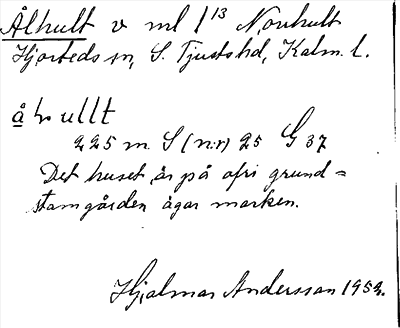 Ålhult v ml 1¹³ Norrhult
Hjorteds sn, S. Tjusts hd, Kalm. l.
å h ullt
225 m. S (n:r) 25 G 37
Det huset är på ofri grund =
stamgården äger marken.
Hjalmar Andersson 1953.